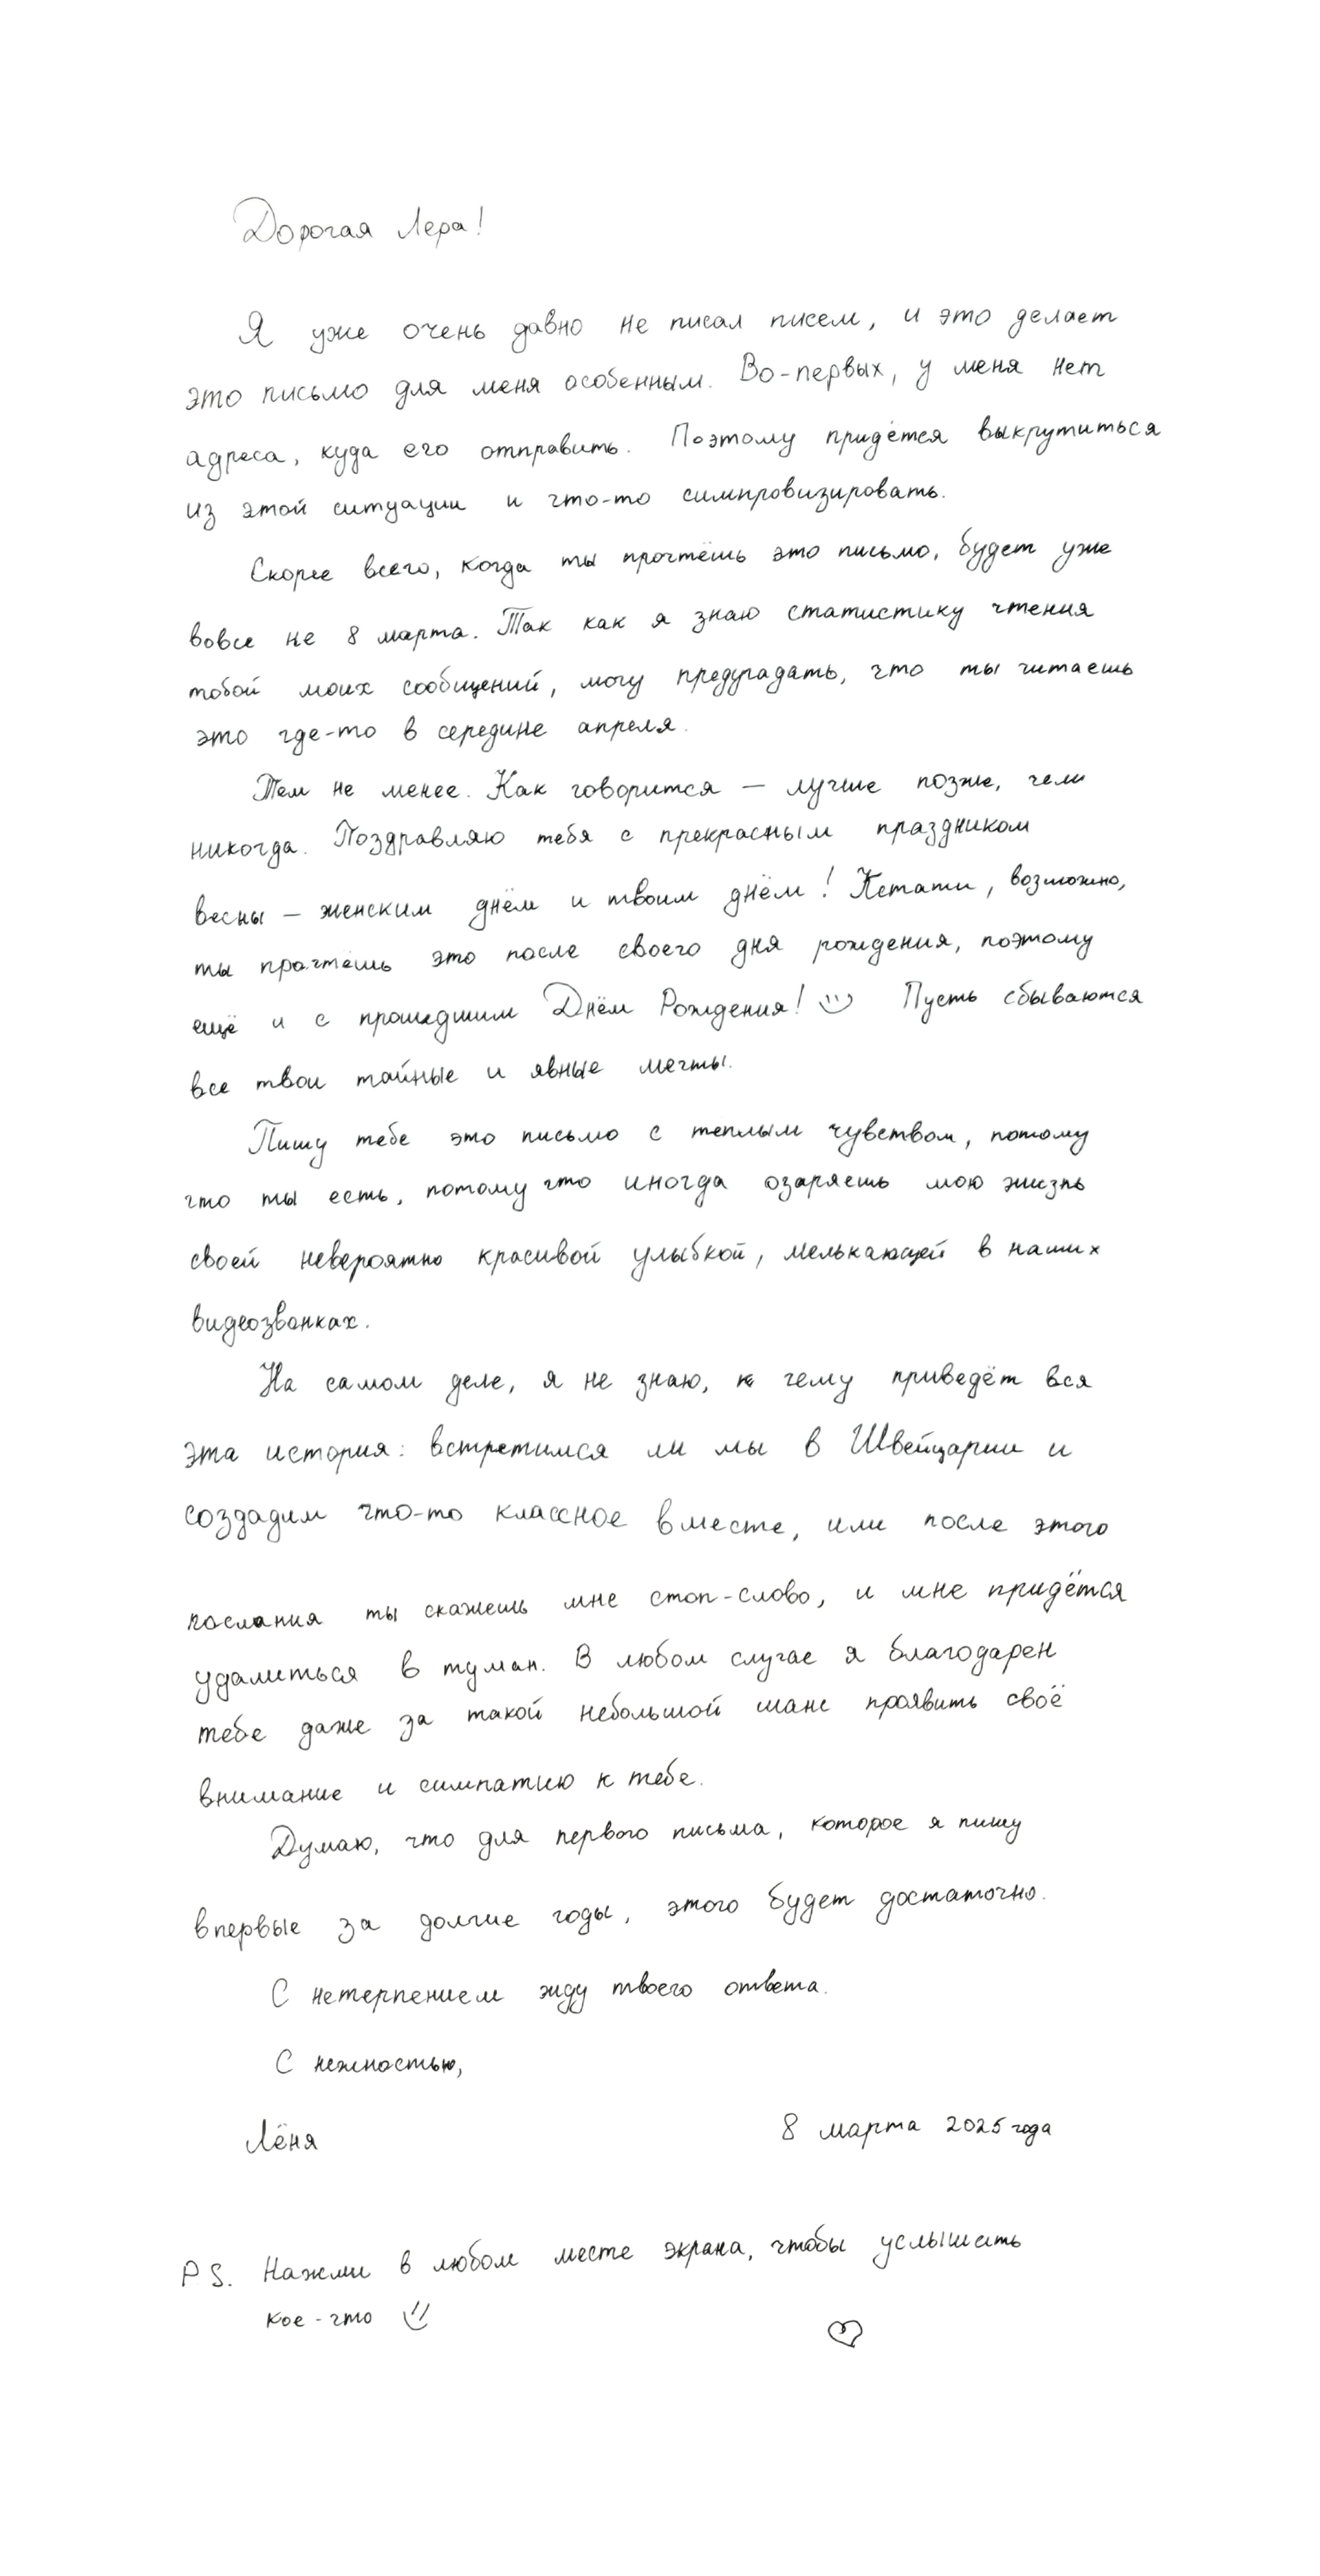 Дорогая Лера!
Я уже очень давно не писал писем, и это делает
это письмо для меня особенным. Во-первых, у меня нет
адреса, куда его отправить. Поэтому придётся выкрутиться
из этой ситуации и что-то симпровизировать.
Скорее всего, когда ты прочтёшь это письмо, будет уже
вовсе не 8 марта. Так как я знаю статистику чтения
тобой моих сообщений, могу предугадать, что ты читаешь
это где-то в середине апреля.
Тем не менее. Как говорится — лучше позже, чем
никогда. Поздравляю тебя с прекрасным праздником
весны — женским днём и твоим днём! Кстати, возможно,
ты прочтёшь это после своего дня рождения, поэтому
ещё и с прошедшим Днём Рождения! :) Пусть сбываются
все твои тайные и явные мечты.
Пишу тебе это письмо с теплым чувством, потому
что ты есть, потому что иногда озаряешь мою жизнь
своей невероятно красивой улыбкой, мелькающей в наших
видеозвонках.
На самом деле, я не знаю, к чему приведёт вся
эта история: встретимся ли мы в Швейцарии и
создадим что-то классное вместе, или после этого
послания ты скажешь мне стоп-слово, и мне придётся
удалиться в туман. В любом случае я благодарен
тебе даже за такой небольшой шанс проявить своё
внимание и симпатию к тебе.
Думаю, что для первого письма, которое я пишу
впервые за долгие годы, этого будет достаточно.
С нетерпением жду твоего ответа.
С нежностью,
Лёня 8 марта 2025 года
PS. Нажми в любом месте экрана, чтобы услышать
кое-что :)